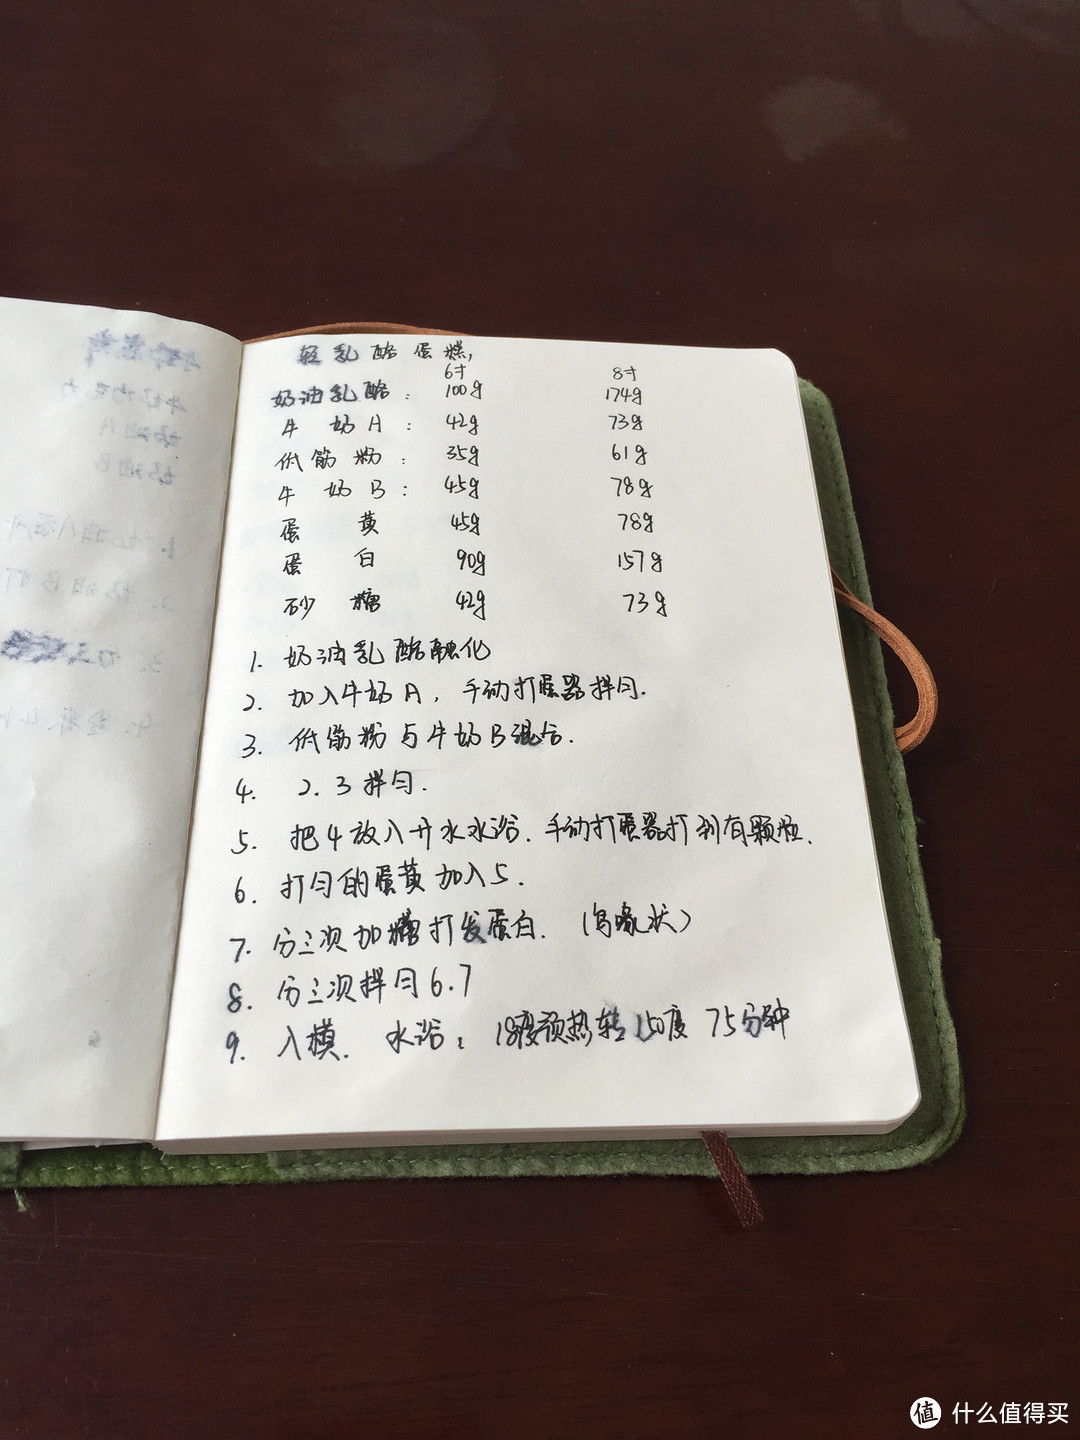 轻乳酪蛋糕,
6寸 8寸
奶油乳酪: 100g 174g
牛奶A: 42g 73g
低筋粉: 35g 61g
牛奶B: 45g 78g
蛋黄 45g 78g
蛋白 90g 157g
砂糖 42g 73g
1. 奶油乳酪融化
2. 加入牛奶A, 手动打蛋器拌匀.
3. 低筋粉与牛奶B混合.
4. 2.3拌匀.
5. 把4放入开水水浴. 手动打蛋器打到有颗粒.
6. 打匀的蛋黄加入5.
7. 分三次加糖打发蛋白. (鸟喙状)
8. 分三次拌匀6.7
9. 入模. 水浴: 18度预热转150度 75分钟
值 什么值得买